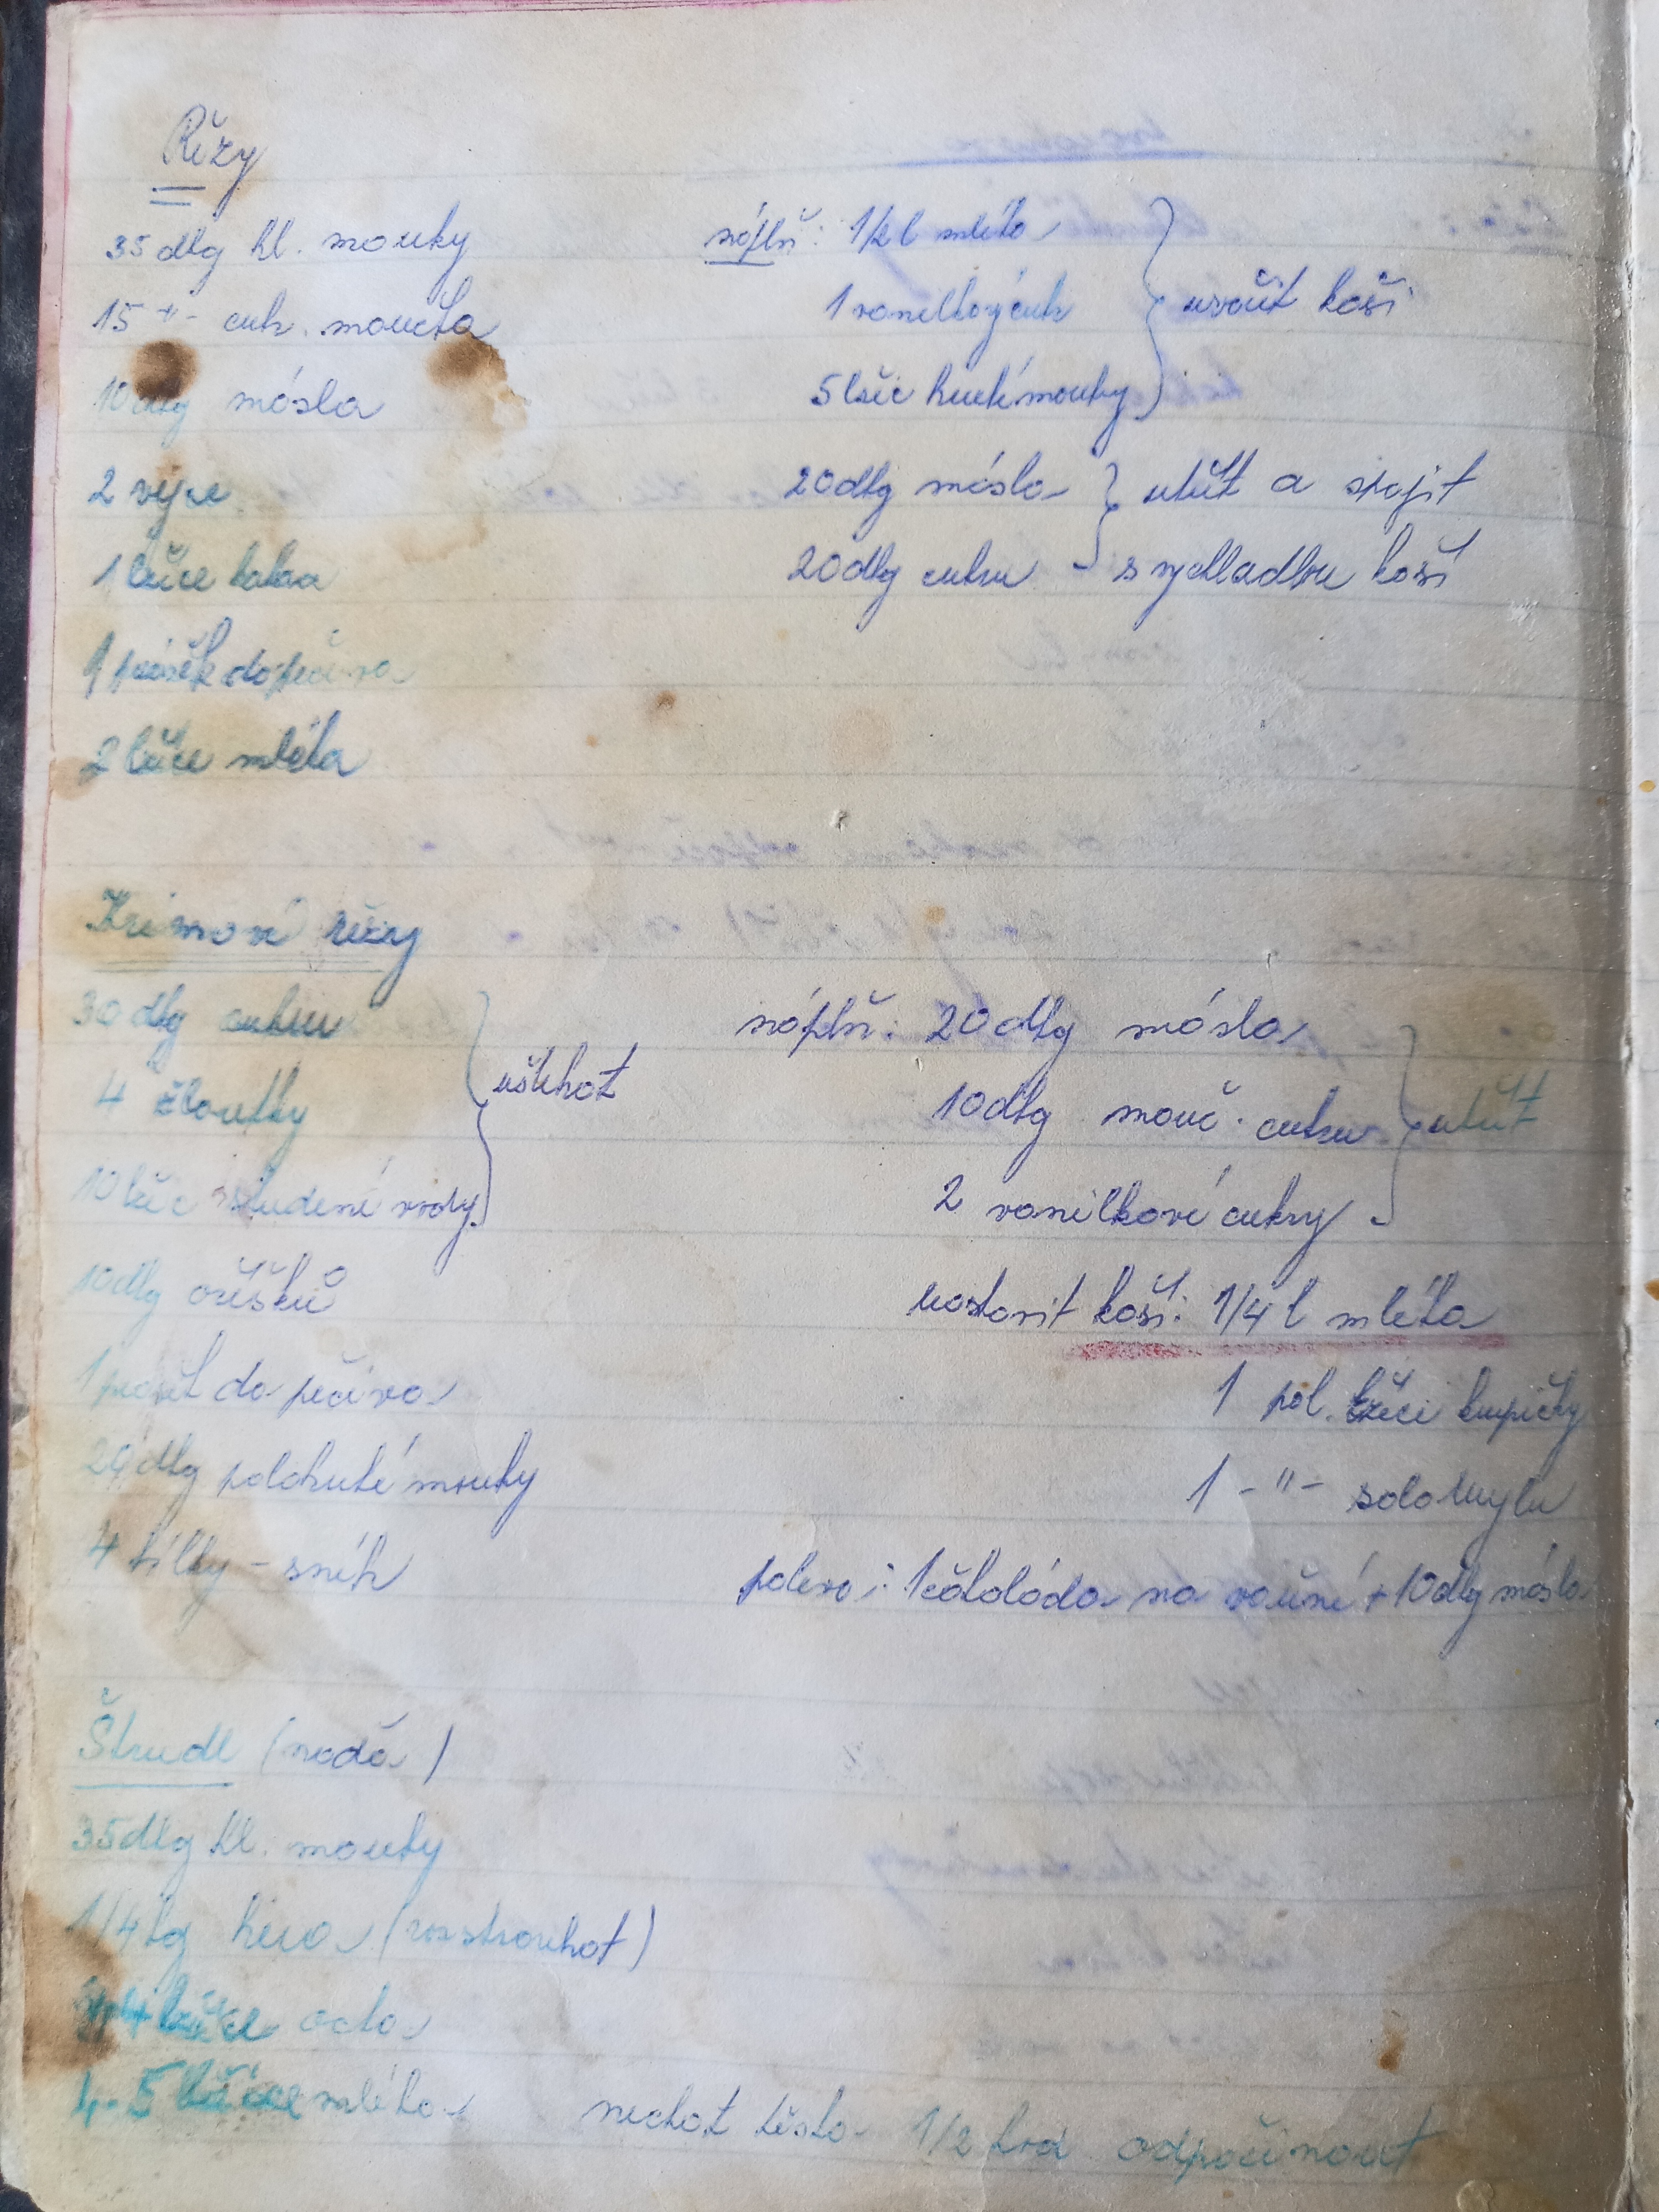 Řezy
35 dkg hl. mouky
15 -"- cuk. moučka
10 dkg másla
2 vejce
1 lžíce kakaa
1 prášek do pečiva
2 lžíce mléka
náplň: 1/2 l mléka
1 vanilkový cuk
5 lžic hrubé mouky
uvařit kaši
20 dkg másla
20 dkg cukru
utřít a spojit
s vychladlou kaší
Krémové řezy
30 dkg cukru
4 žloutky
10 lžic studené vody
ušlehat
10 dkg oříšků
1 prášek do pečiva
dkg polohrubé mouky
4 bílky - sníh
náplň: 20 dkg másla
10 dkg mouč. cukru
2 vanilkové cukry
utřít
kaši: 1/4 l mléka
1 pol. lžíci krupičky
1 -"- solamylu
poleva: 1 čokoláda na vaření + 10 dkg másla
Štrudl (naďa)
35 dkg hl. mouky
1/4 kg hera (rozstrouhat)
lžíce octa
4-5 lžíce mléka
nechat těsto 1/2 hod odpočinout